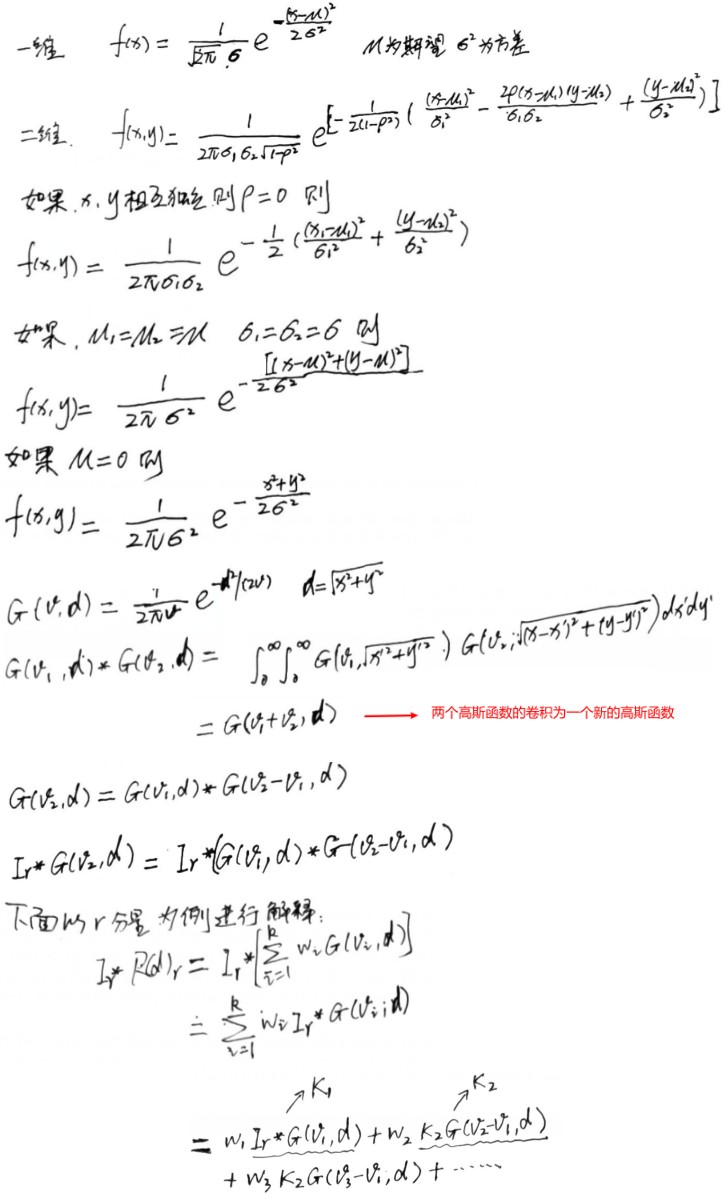 一维 f(x) = \frac{1}{\sqrt{2π} σ} e^{-\frac{(x-μ)^2}{2σ^2}} μ为期望 σ^2为方差
二维. f(x,y) = \frac{1}{2πσ_1σ_2\sqrt{1-ρ^2}} e^{[-\frac{1}{2(1-ρ^2)}(\frac{(x-μ_1)^2}{σ_1^2} - \frac{2ρ(x-μ_1)(y-μ_2)}{σ_1σ_2} + \frac{(y-μ_2)^2}{σ_2^2})]}
如果.x,y相互独立则ρ=0 则
f(x,y) = \frac{1}{2πσ_1σ_2} e^{-\frac{1}{2}(\frac{(x_1-μ_1)^2}{σ_1^2} + \frac{(y-μ_2)^2}{σ_2^2})}
如果, μ_1=μ_2=μ σ_1=σ_2=σ 则
f(x,y) = \frac{1}{2πσ^2} e^{-\frac{[(x-μ)^2+(y-μ)^2]}{2σ^2}}
如果 μ=0 则
f(x,y) = \frac{1}{2πσ^2} e^{-\frac{x^2+y^2}{2σ^2}}
G(v,d) = \frac{1}{2πv} e^{-d^2/(2v)} d=\sqrt{x^2+y^2}
G(v_1,d)*G(v_2,d) = ∫_0^∞∫_0^∞ G(v_1,\sqrt{x'^2+y'^2}) G(v_2,\sqrt{(x-x')^2+(y-y')^2})dx'dy'
= G(v_1+v_2,d) → 两个高斯函数的卷积为一个新的高斯函数
G(v_2,d) = G(v_1,d)*G(v_2-v_1,d)
I_r*G(v_2,d) = I_r*(G(v_1,d)*G(v_2-v_1,d)
下面以r分量为例进行解释:
I_r*R(d)_r = I_r*[\sum_{i=1}^{k} w_iG(v_i,d)]
= \sum_{i=1}^{k} w_iI_r*G(v_i,d)
↗K_1 ↗K_2
= w_1I_r*G(v_1,d) + w_2 K_2G(v_2-v_1,d)
+ w_3 K_2G(v_3-v_1,d) + ......